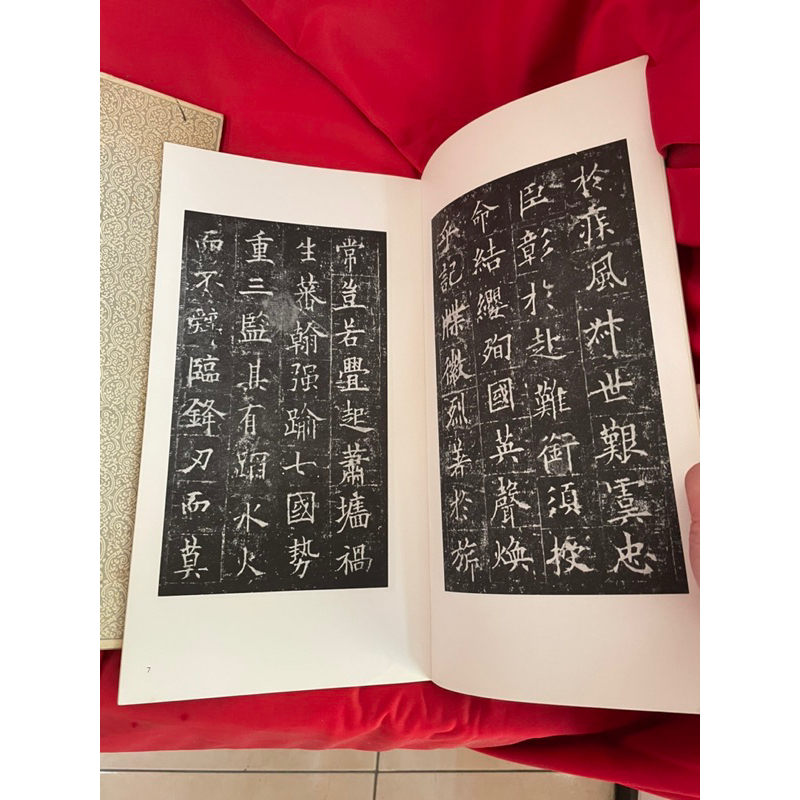 於疾風叔世艱虞忠
臣彰於赴難銜須授
命結纓殉國英聲煥
乎記牒徽烈著於旂
常豈若舋起蕭墻禍
生蕃翰强踰七國勢
重三監其有蹈水火
而不辭臨鋒刃而莫
7